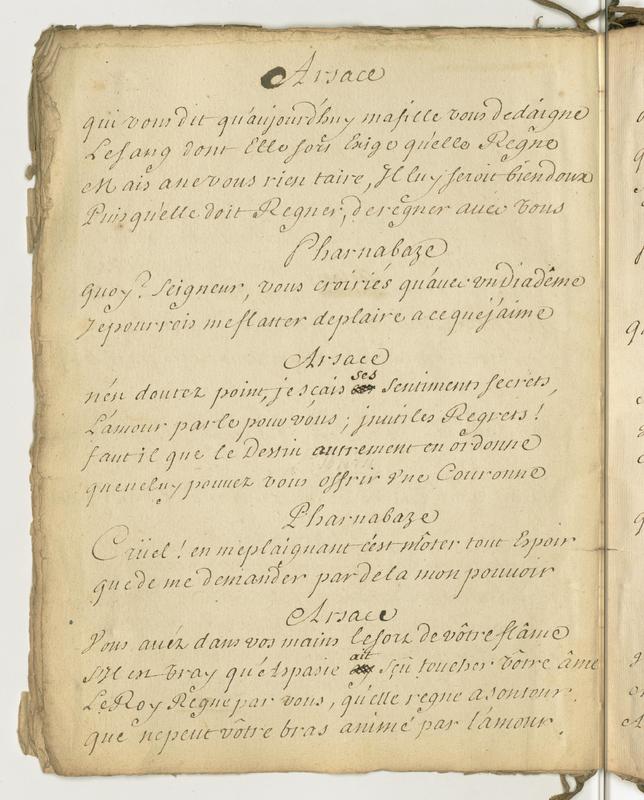 Arsace
qui vous dit qu'aujourd'huy ma fille vous dedaigne
Le sang dont Elle sort Exige qu'elle Regne
Mais a ne vous rien taire, Il luy seroit bien doux
Puis qu'elle doit Regner, de regner avec vous
Pharnabaze
quoy? Seigneur, vous croiriés qu'avec un Diadême
Je pourrois me flatter de plaire a ce que j'aime
Arsace
n'en doutez point, je sçais ses sentiments secrets,
L'amour parle pour vous; jnutiles Regrets!
faut il que le Destin autrement en ordonne
que ne luy pouvez vous offrir vne Couronne
Pharnabaze
Crüel! en me plaignant c'est m'ôter tout Espoir
que de me demander par dela mon pouvoir
Arsace
Vous avéz dans vos mains le sort de vôtre flâme
S'Il est vray qu'Aspasie ait sçû toucher vôtre âme
Le Roy Regne par vous, qu'elle regne a son tour.
que ne peut vôtre bras animé par l'amour.